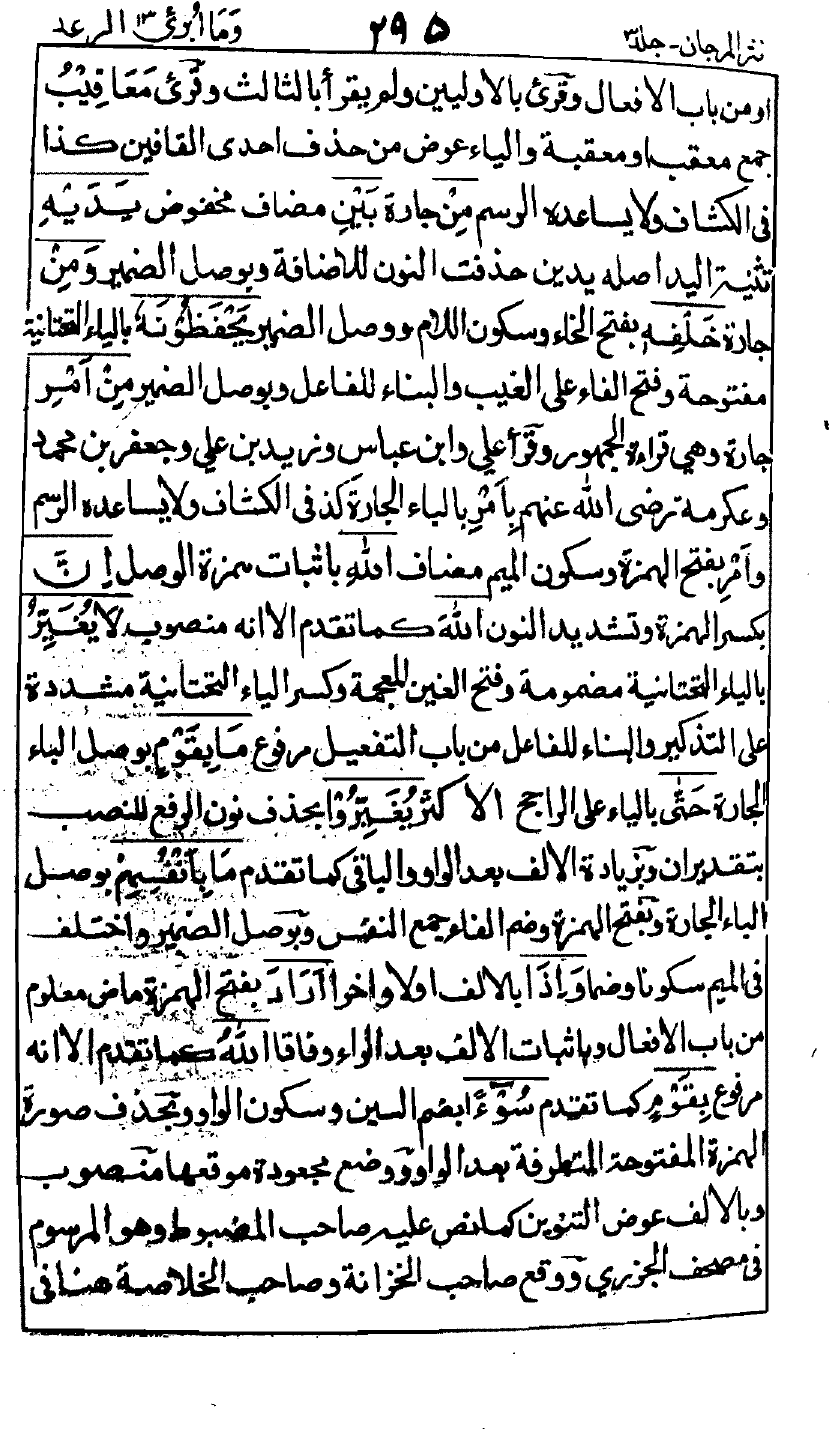 نثر المرجان - جلد ٣ ٢٩٥ وَمَا أُبَرِّئُ ١٣ الرعد
او من باب الافعال وقُرئ بالاوليين ولم يقرأ بالثالث وقُرئ مَعَاقِيْبُ
جمع معقب او معقبة والياء عوض من حذف احدى القافين كذا
فى الكشاف ولا يساعده الرسم مِنْ جارة بَيْنِ مضاف مخفوض يَدَيْهِ
تثنية اليد اصله يدين حذفت النون للاضافة وبوصل الضمير وَمِنْ
جارة خَلْفِهِ بفتح الخاء وسكون اللام ووصل الضمير يَحْفَظُوْنَهُ بالياء التحتانية
مفتوحة وفتح الفاء على الغيب والبناء للفاعل وبوصل الضمير مِنْ اَمْرِ
جارة وهي قراءة الجمهور وقرأ علي وابن عباس وزيد بن علي وجعفر بن محمد
وعكرمة رضى الله عنهم بِاَمْرِ بالباء الجارة كذا فى الكشاف ولا يساعده الرسم
واَمْرِ بفتح الهمزة وسكون الميم مضاف اللهِ باثبات همزة الوصل اِنَّ
بكسر الهمزة وتشديد النون اللهَ كما تقدم الا انه منصوب لَا يُغَيِّرُ
بالياء التحتانية مضمومة وفتح الغين المعجمة وكسر الياء التحتانية مشددة
على التذكير والبناء للفاعل من باب التفعيل مرفوع مَا بِقَوْمٍ بوصل الباء
الجارة حَتّٰى بالياء على الراجح الاكثر يُغَيِّرُوْا بحذف نون الرفع للنصب
بتقدير ان وبزيادة الالف بعد الواو والباقى كما تقدم مَا بِاَنْفُسِهِمْ بوصل
الباء الجارة وبفتح الهمزة وضم الفاء جمع النفس وبوصل الضمير واختلف
فى الميم سكونا وضما وَاِذَا بالالف اولا واخرا اَرَادَ بفتح الهمزة ماض معلوم
من باب الافعال وباثبات الالف بعد الراء وفاقا اللهُ كما تقدم الا انه
مرفوع بِقَوْمٍ كما تقدم سُوْٓءًا بضم السين وسكون الواو وبحذف صورة
الهمزة المفتوحة المتطرفة بعد الواو ووضع مجعودة موقعها منصوب
وبالالف عوض التنوين كما نص عليه صاحب المضبوط وهو المرسوم
فى مصحف الجزري ووقع صاحب الخزانة وصاحب الخلاصة هنا فى